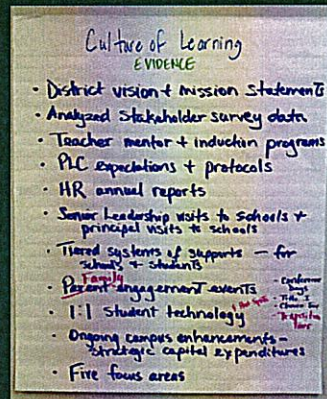 Culture of Learning
EVIDENCE
• District vision + mission statements
• Analyzed stakeholder survey data
• Teacher mentor + induction programs
• PLC expectations + protocols
• HR annual reports
• Senior Leadership visits to schools +
principal visits to schools
• Tiered systems of supports - for
schools + students
Family
• Parent engagement events
- Conference
Days
- Title I
• 1:1 student technology
• Ongoing campus enhancements -
strategic capital expenditures
• Five focus areas